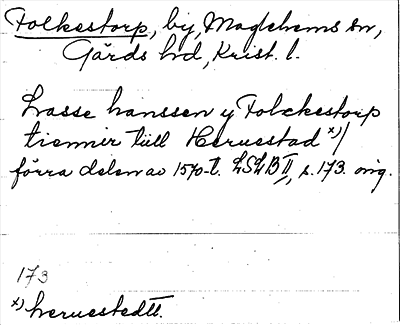 Folkestorp, by, Maglehems sn,
Gärds hd, Krist. l.
Lasse hanssen y Folckestorp
tienner till Heruestad x)/
förra delen av 1570-t. LSLB II, s. 173. orig.
173
x) heruestedtt.